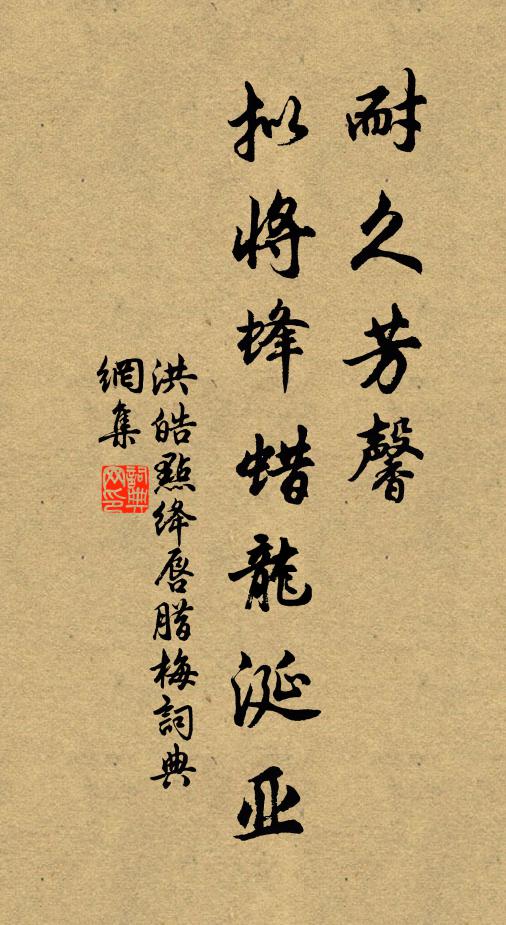 耐久芳馨
拟将蜂蜡龍涎亚
洪皓點绛唇腊梅詞典
網集
詞典网印